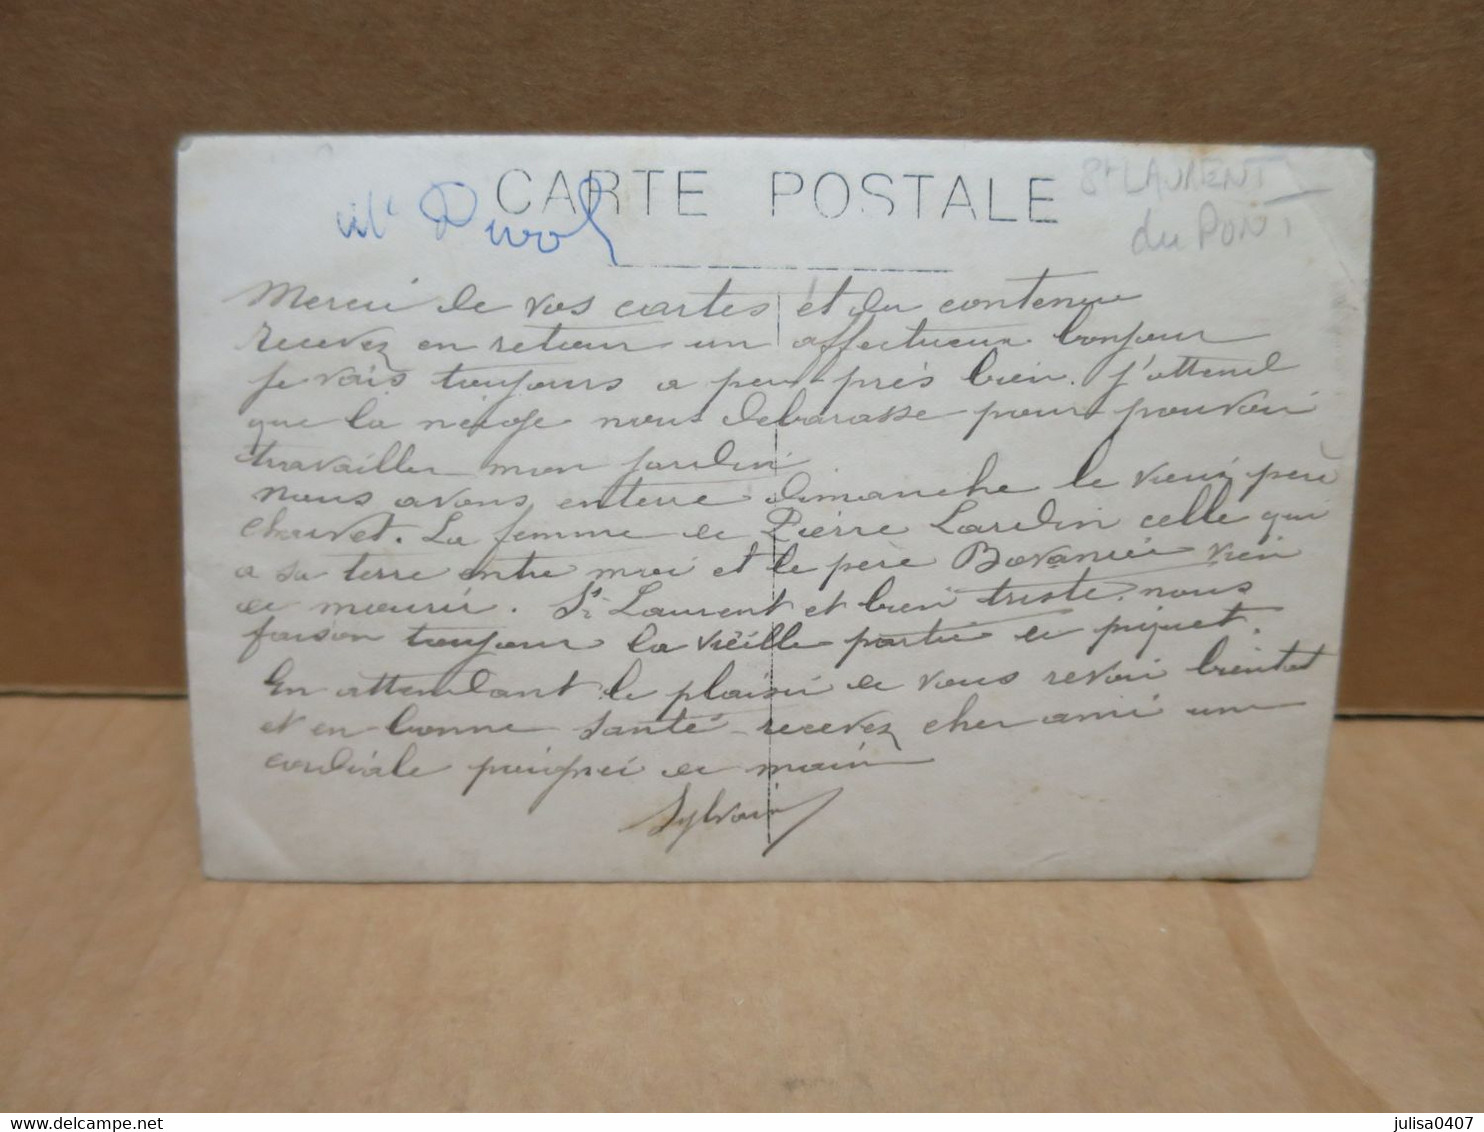 CARTE POSTALE
St LAURENT
du PONT
Merci de vos cartes et du contenue
recevez en retour un affectueux bonjour
je vais toujours a peu près bien. j'attend
que la neige nous debarasse pour pouvoir
travailler mon jardin
nous avons enterre dimanche le vieux père
Chauvet. La femme de Pierre Lardin celle qui
a sa terre entre moi et le père Bovanier vien
de mourir. St Laurent et bien triste. nous
faison toujour la vieille partie de piquet.
En attendant le plaisir de vous revoir bientot
et en bonne santé recevez cher ami une
cordiale poignei de main
Sylvain
julisa0407